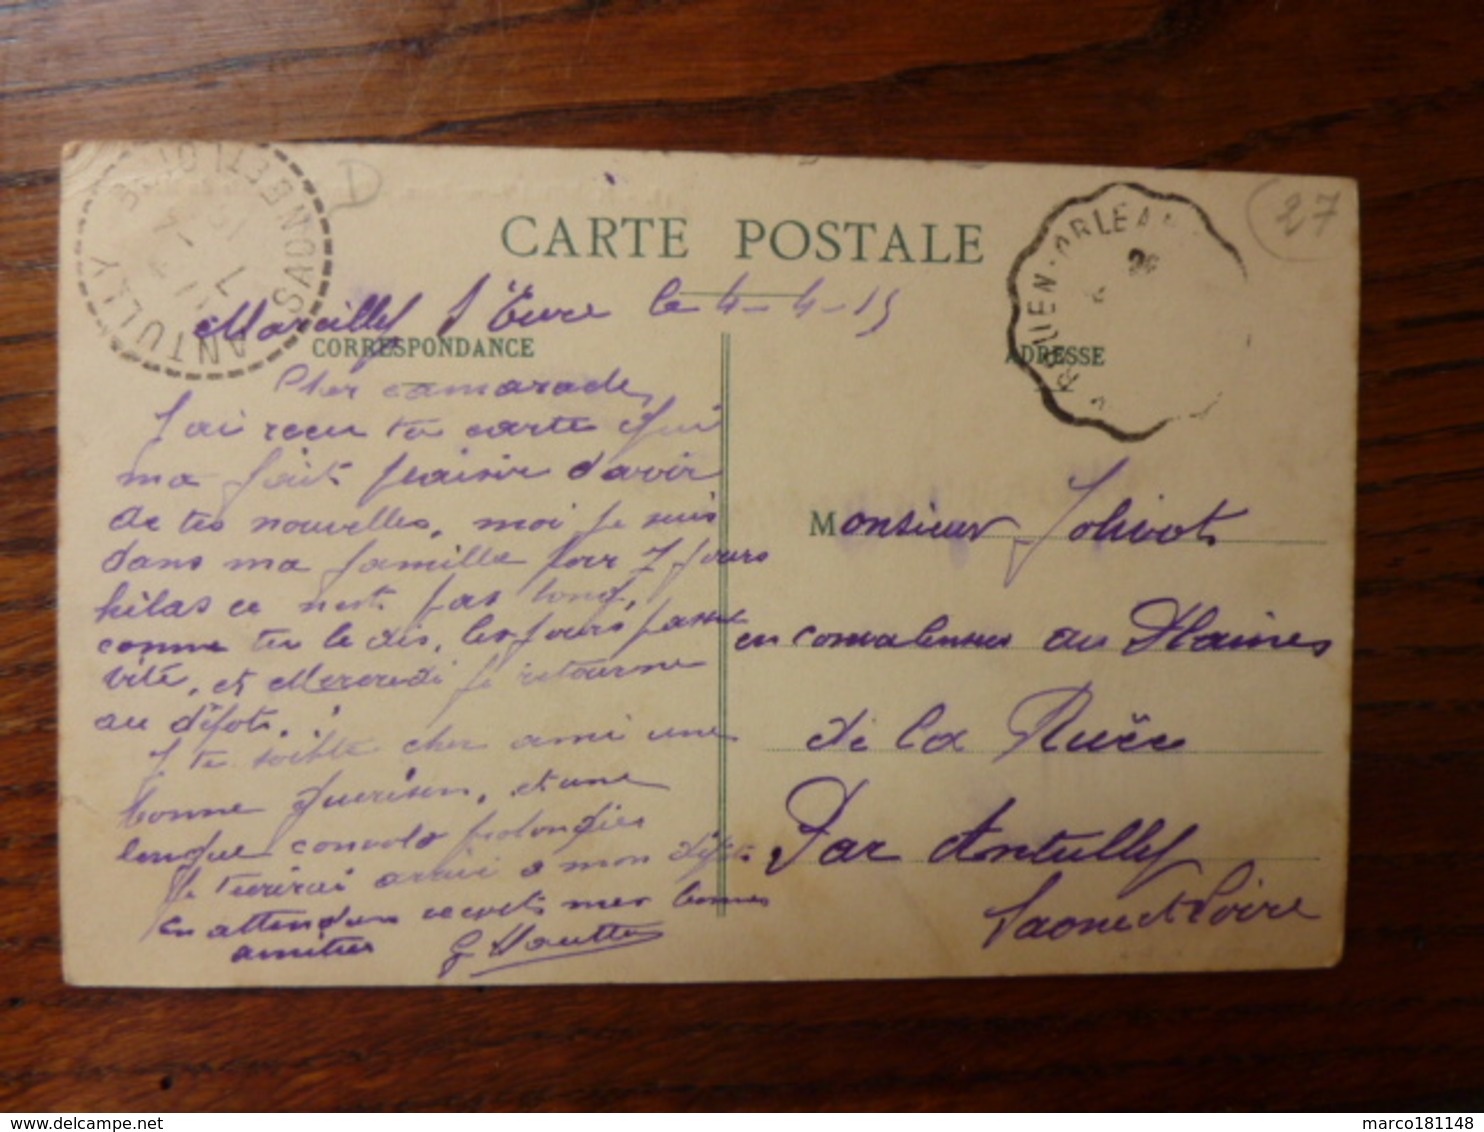 CARTE POSTALE
Marcilly s/ Eure le 4-4-15
CORRESPONDANCE
Cher camarade,
J'ai reçu ta carte qui
ma fait plaisir d'avoir
de tes nouvelles, moi je suis
dans ma famille pour 7 jours
hélas ce n'est pas long,
comme tu le dis, les jours passe
vite, et Mercredi je retourne
au dépôt.
Je te soite cher ami une
bonne guérison, et une
longue convalo prolongées
Je t'écrirai arrivé a mon dépôt
en attendan recoit mes bonnes
amitiés
ADRESSE
Monsieur Jolivot
en convalensces au Plaines
de la Ruée
Par Antully
Saone et Loire
ANTULLY
SAONE ET LOIRE
ROUEN - ORLEA
27
marco181148